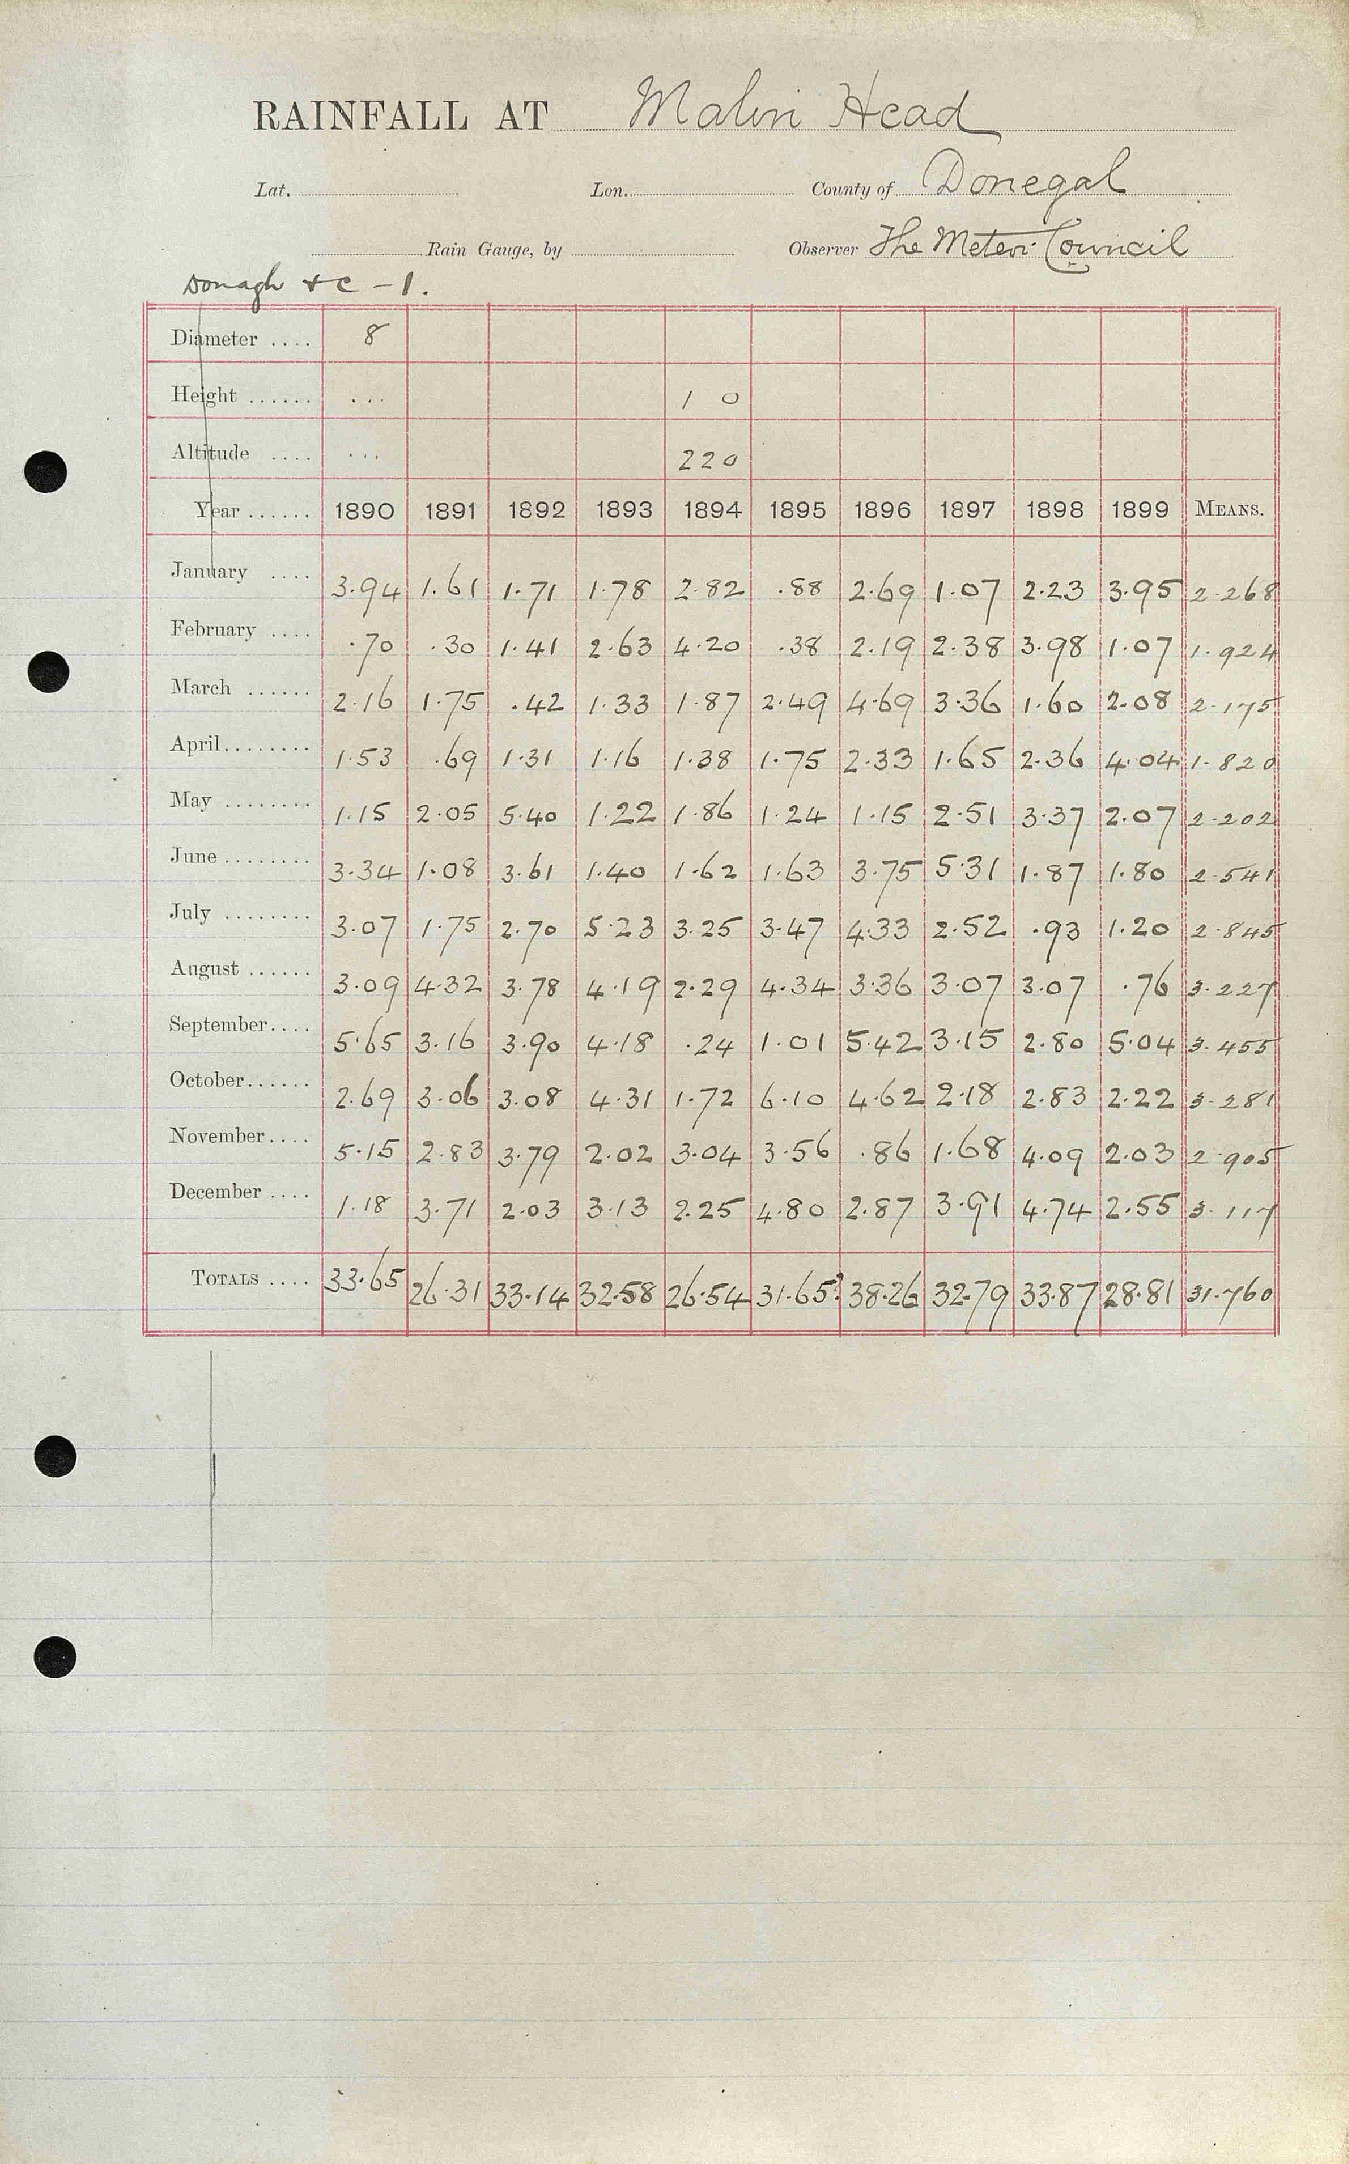 RAINFALL AT Malin Head
Lat. Lon. County of Donegal
Rain Gauge, by Observer The Meteor: Council
Donagh & C - 1.
Diameter .... 8
Height ...... ... 1 0
Altitude .... ... 220
Year ...... 1890 1891 1892 1893 1894 1895 1896 1897 1898 1899 MEANS.
January .... 3.94 1.61 1.71 1.78 2.82 .88 2.69 1.07 2.23 3.95 2.268
February .... .70 .30 1.41 2.63 4.20 .38 2.19 2.38 3.98 1.07 1.924
March ...... 2.16 1.75 .42 1.33 1.87 2.49 4.69 3.36 1.60 2.08 2.175
April........ 1.53 .69 1.31 1.16 1.38 1.75 2.33 1.65 2.36 4.04 1.820
May ........ 1.15 2.05 5.40 1.22 1.86 1.24 1.15 2.51 3.37 2.07 2.202
June ........ 3.34 1.08 3.61 1.40 1.62 1.63 3.75 5.31 1.87 1.80 2.541
July ........ 3.07 1.75 2.70 5.23 3.25 3.47 4.33 2.52 .93 1.20 2.845
August ...... 3.09 4.32 3.78 4.19 2.29 4.34 3.36 3.07 3.07 .76 3.227
September.... 5.65 3.16 3.90 4.18 .24 1.01 5.42 3.15 2.80 5.04 3.455
October...... 2.69 3.06 3.08 4.31 1.72 6.10 4.62 2.18 2.83 2.22 3.281
November.... 5.15 2.83 3.79 2.02 3.04 3.56 .86 1.68 4.09 2.03 2.905
December .... 1.18 3.71 2.03 3.13 2.25 4.80 2.87 3.91 4.74 2.55 3.117
TOTALS .... 33.65 26.31 33.14 32.58 26.54 31.65? 38.26 32.79 33.87 28.81 31.760